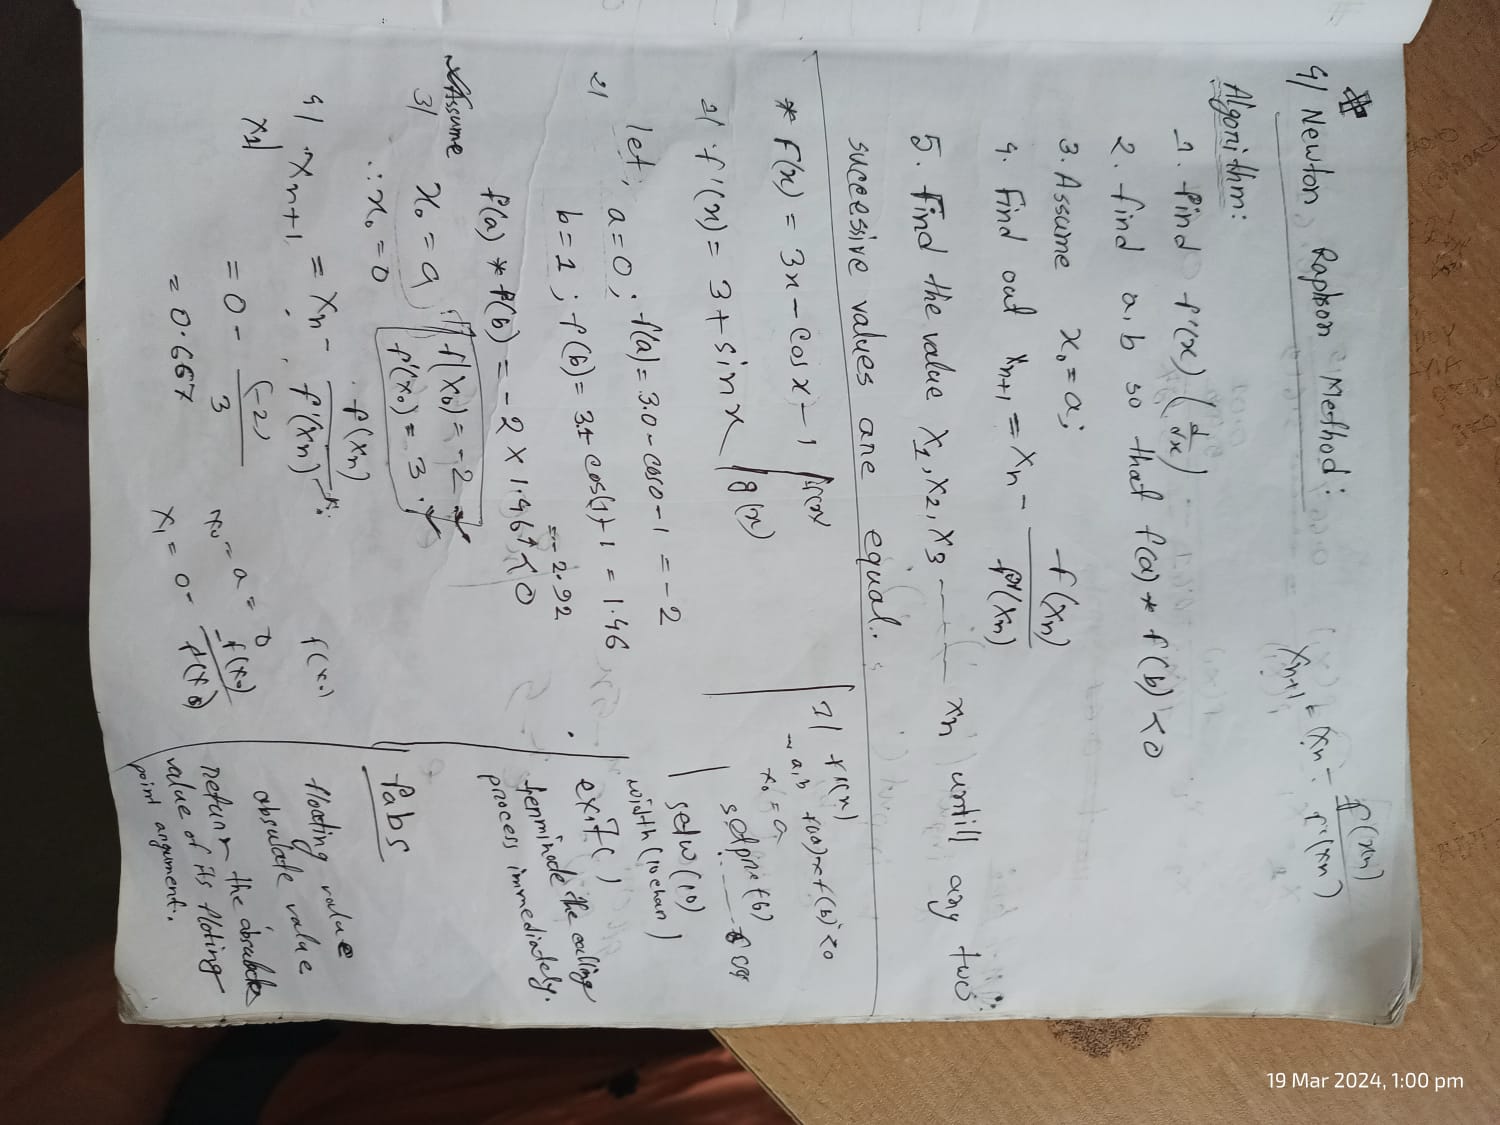 4/ Newton Raphson Method:
xn+1 = xn - f(xn) / f'(xn)
Algorithm:
1. Find f'(x) (d/dx)
2. find a, b so that f(a) * f(b) < 0
3. Assume x₀ = a;
4. Find out xn+1 = xn - f(xn) / f'(xn)
5. Find the value x₁, x₂, x₃ ---- xn until any two
successive values are equal.
* f(x) = 3x - cos x - 1
1/ f'(x) = 3 + sin x
g(x)
2/
let, a = 0; f(a) = 3.0 - cos0 - 1 = -2
b = 1; f(b) = 3.1 cos(1) + 1 = 1.46
= -2.92
f(a) * f(b) = -2 × 1.46 < 0
Assume
3/ x₀ = a
∴ x₀ = 0
f(x₀) = -2
f'(x₀) = 3
4/ xn+1 = xn - f(xn) / f'(xn)
x₁/
= 0 - (-2) / 3
= 0.667
f(x₀)
x₀ = a = 0
x₁ = 0 - f(x₀) / f'(x₀)
1/
→ a, b f(a) * f(b) < 0
x₀ = a
setw(10)
width(10 char)
exit()
terminode the calling
process immediately.
fabs
floting value
absulate value
return the absulate
value of its floting
point argument.
19 Mar 2024, 1:00 pm